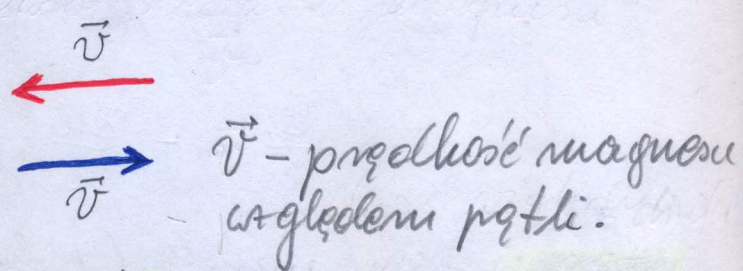 v⃗
v⃗
v⃗ – prędkość magnesu
względem pętli.